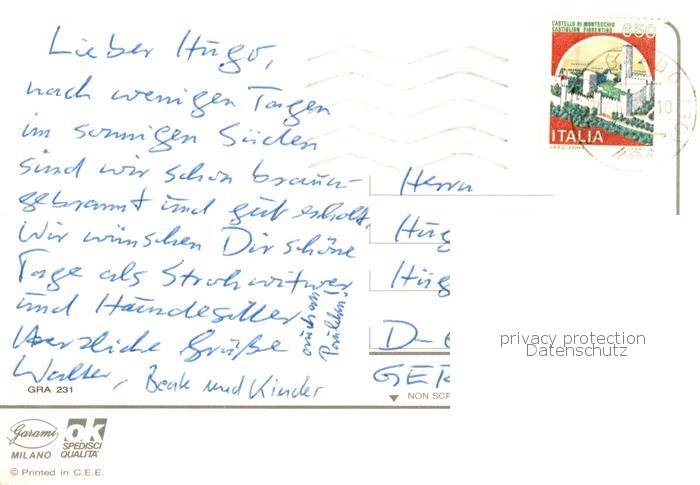 Lieber Hugo,
nach wenigen Tagen
im sonnigen Süden
sind wir schon braun-
gebrannt und gut erholt.
Wir wünschen Dir schöne
Tage als Strohwitwer
und Hundesitter.
Herzliche Grüße
Walter, Beate und Kinder
auch an
CASTELLO DI MONTECCHIO
CASTIGLION FIORENTINO
650
ITALIA
Herrn
Hug
Hüg
D-6
GER
privacy protection
Datenschutz
GRA 231
NON SCR
Garami
MILANO
OK
SPEDISCI
QUALITA'
© Printed in C.E.E.